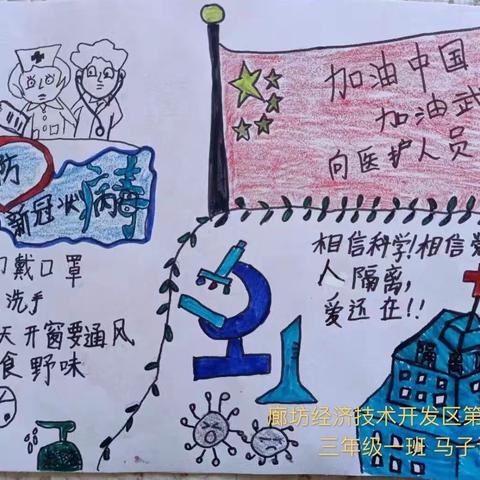 加油中国
加油武
向医护人员
防
新冠状病毒
戴口罩
洗手
天开窗要通风
食野味
相信科学相信党
人隔离,
爱还在!!
隔离
廊坊经济技术开发区第
三年级一班 马子